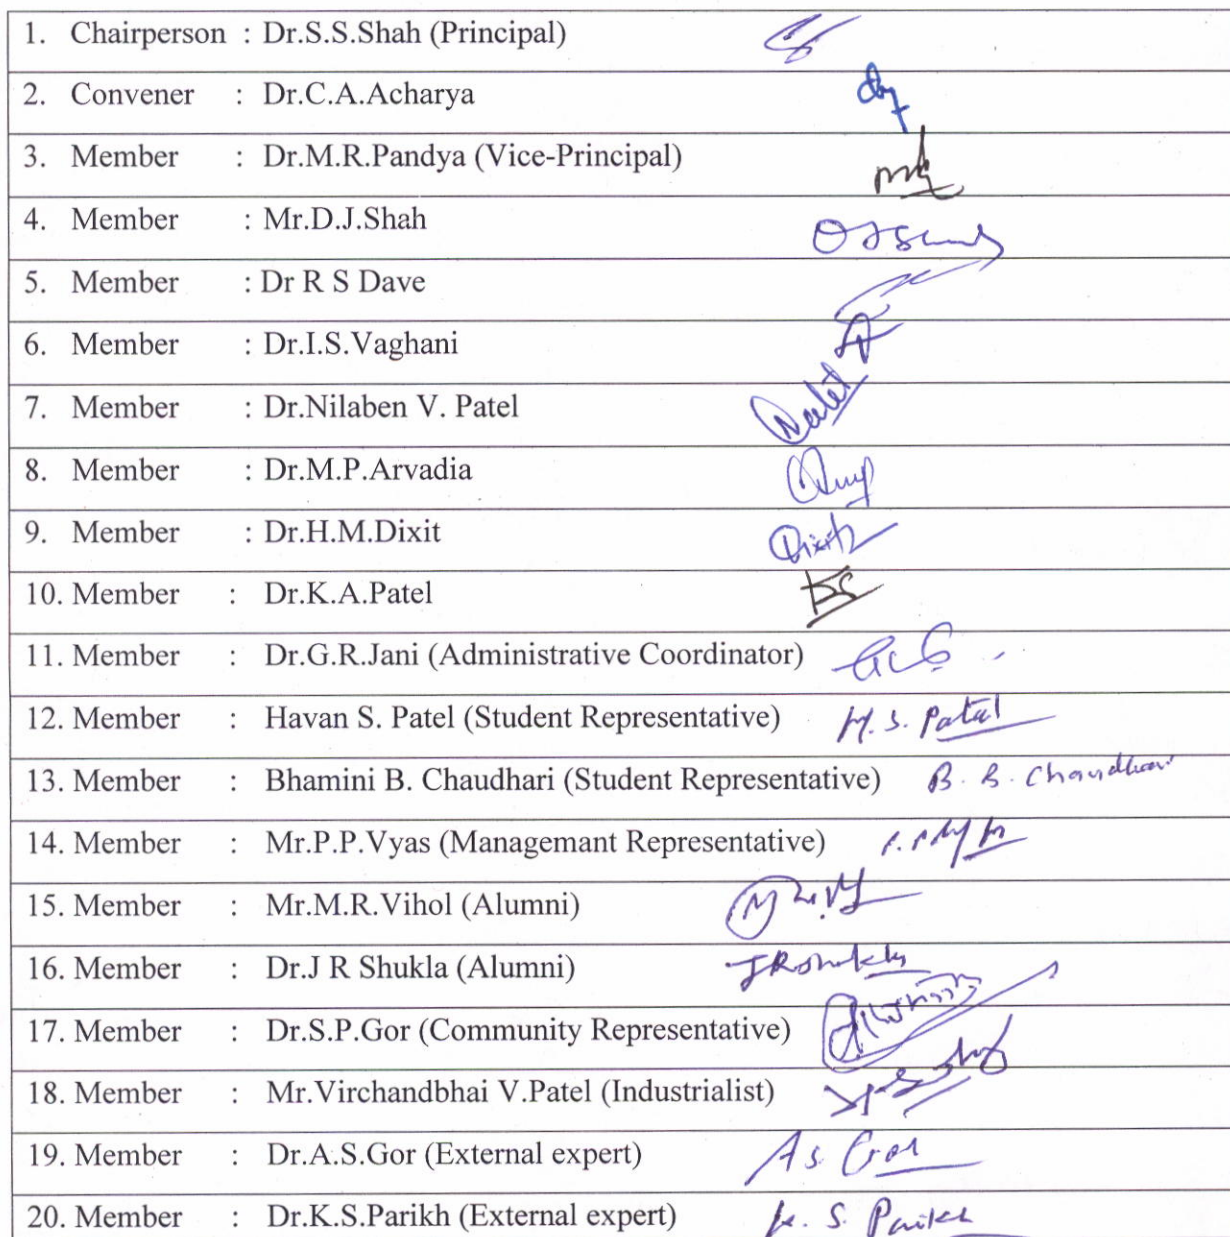 1. Chairperson : Dr.S.S.Shah (Principal)
2. Convener : Dr.C.A.Acharya
3. Member : Dr.M.R.Pandya (Vice-Principal)
4. Member : Mr.D.J.Shah
5. Member : Dr R S Dave
6. Member : Dr.I.S.Vaghani
7. Member : Dr.Nilaben V. Patel
8. Member : Dr.M.P.Arvadia
9. Member : Dr.H.M.Dixit Dixit
10. Member : Dr.K.A.Patel
11. Member : Dr.G.R.Jani (Administrative Coordinator)
12. Member : Havan S. Patel (Student Representative) H. S. Patal
13. Member : Bhamini B. Chaudhari (Student Representative) B. B. Chaudhari
14. Member : Mr.P.P.Vyas (Managemant Representative)
15. Member : Mr.M.R.Vihol (Alumni)
16. Member : Dr.J R Shukla (Alumni) JRShukla
17. Member : Dr.S.P.Gor (Community Representative)
18. Member : Mr.Virchandbhai V.Patel (Industrialist)
19. Member : Dr.A.S.Gor (External expert) As Gor
20. Member : Dr.K.S.Parikh (External expert) K. S. Parikh